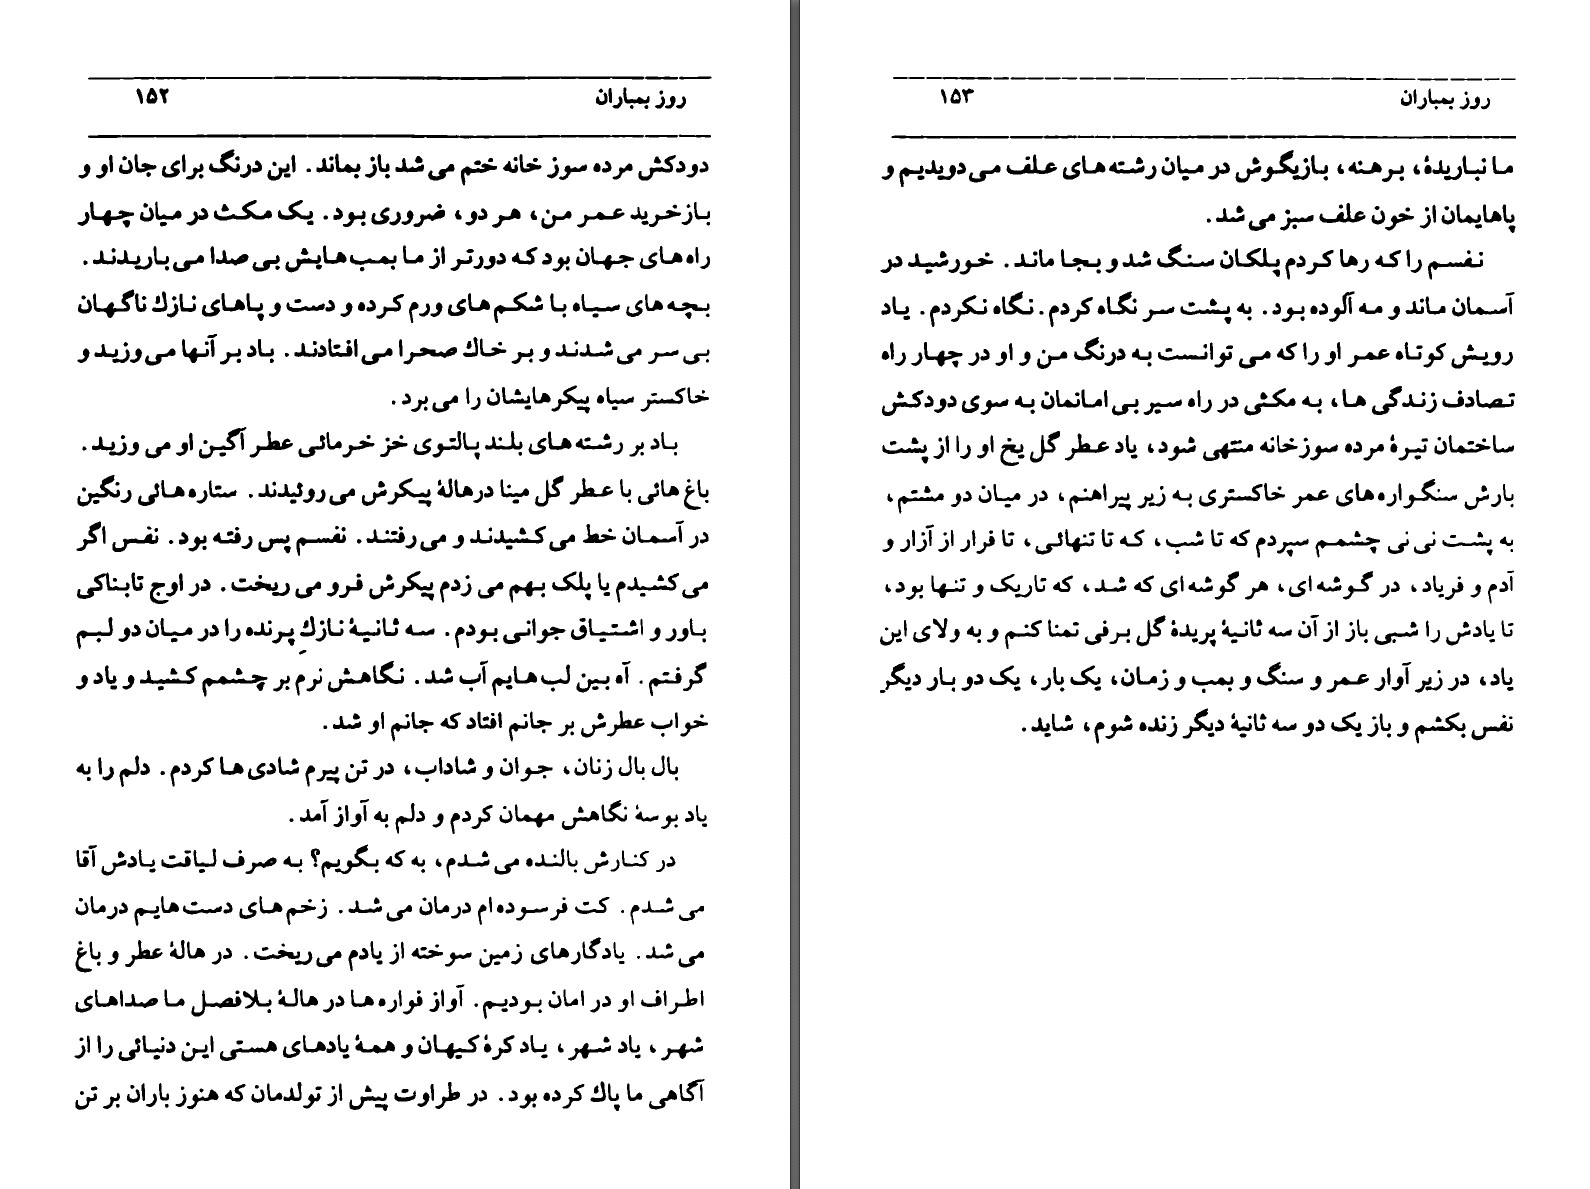 روز بمباران ۱۵۲
دودکش مرده سوز خانه ختم می شد باز بماند. این درنگ برای جان او و
بازخرید عمر من، هر دو، ضروری بود. یک مکث در میان چهار
راه های جهان بود که دورتر از ما بمب هایش بی صدا می باریدند.
بچه های سیاه با شکم های ورم کرده و دست و پاهای نازك ناگهان
بی سر می شدند و بر خاك صحرا می افتادند. باد بر آنها می وزید و
خاکستر سیاه پیکرهایشان را می برد.
باد بر رشته های بلند پالتوی خز خرمائی عطر آگین او می وزید.
باغ هائی با عطر گل مینا درهالهٔ پیکرش می روئیدند. ستاره هائی رنگین
در آسمان خط می کشیدند و می رفتند. نفسم پس رفته بود. نفس اگر
می کشیدم یا پلک بهم می زدم پیکرش فرو می ریخت. در اوج تابناکی
باور و اشتیاق جوانی بودم. سه ثانیهٔ نازك پرنده را در میان دو لبم
گرفتم. آه بین لب هایم آب شد. نگاهش نرم بر چشمم کشید و یاد و
خواب عطرش بر جانم افتاد که جانم او شد.
بال بال زنان، جوان و شاداب، در تن پیرم شادی ها کردم. دلم را به
یاد بوسهٔ نگاهش مهمان کردم و دلم به آواز آمد.
در کنارش بالنده می شدم، به که بگویم؟ به صرف لیاقت یادش آقا
می شدم. کت فرسوده ام درمان می شد. زخم های دست هایم درمان
می شد. یادگارهای زمین سوخته از یادم می ریخت. در هالهٔ عطر و باغ
اطراف او در امان بودیم. آواز فواره ها در هالهٔ بلافصل ما صداهای
شهر، یاد شهر، یاد کرهٔ کیهان و همهٔ یادهای هستی این دنیائی را از
آگاهی ما پاك کرده بود. در طراوت پیش از تولدمان که هنوز باران بر تن
روز بمباران ۱۵۳
ما نباریدهٔ، برهنه، بازیگوش در میان رشته های علف می دویدیم و
پاهایمان از خون علف سبز می شد.
نفسم را که رها کردم پلکان سنگ شد و بجا ماند. خورشید در
آسمان ماند و مه آلوده بود. به پشت سر نگاه کردم. نگاه نکردم. یاد
رویش کوتاه عمر او را که می توانست به درنگ من و او در چهار راه
تصادف زندگی ها، به مکثی در راه سیر بی امانمان به سوی دودکش
ساختمان تیرهٔ مرده سوزخانه منتهی شود، یاد عطر گل یخ او را از پشت
بارش سنگواره های عمر خاکستری به زیر پیراهنم، در میان دو مشتم،
به پشت نی نی چشمم سپردم که تا شب، که تا تنهائی، تا فرار از آزار و
آدم و فریاد، در گوشه ای، هر گوشه ای که شد، که تاریک و تنها بود،
تا یادش را شبی باز از آن سه ثانیهٔ پریدهٔ گل برفی تمنا کنم و به ولای این
یاد، در زیر آوار عمر و سنگ و بمب و زمان، یک بار، یک دو بار دیگر
نفس بکشم و باز یک دو سه ثانیهٔ دیگر زنده شوم، شاید.